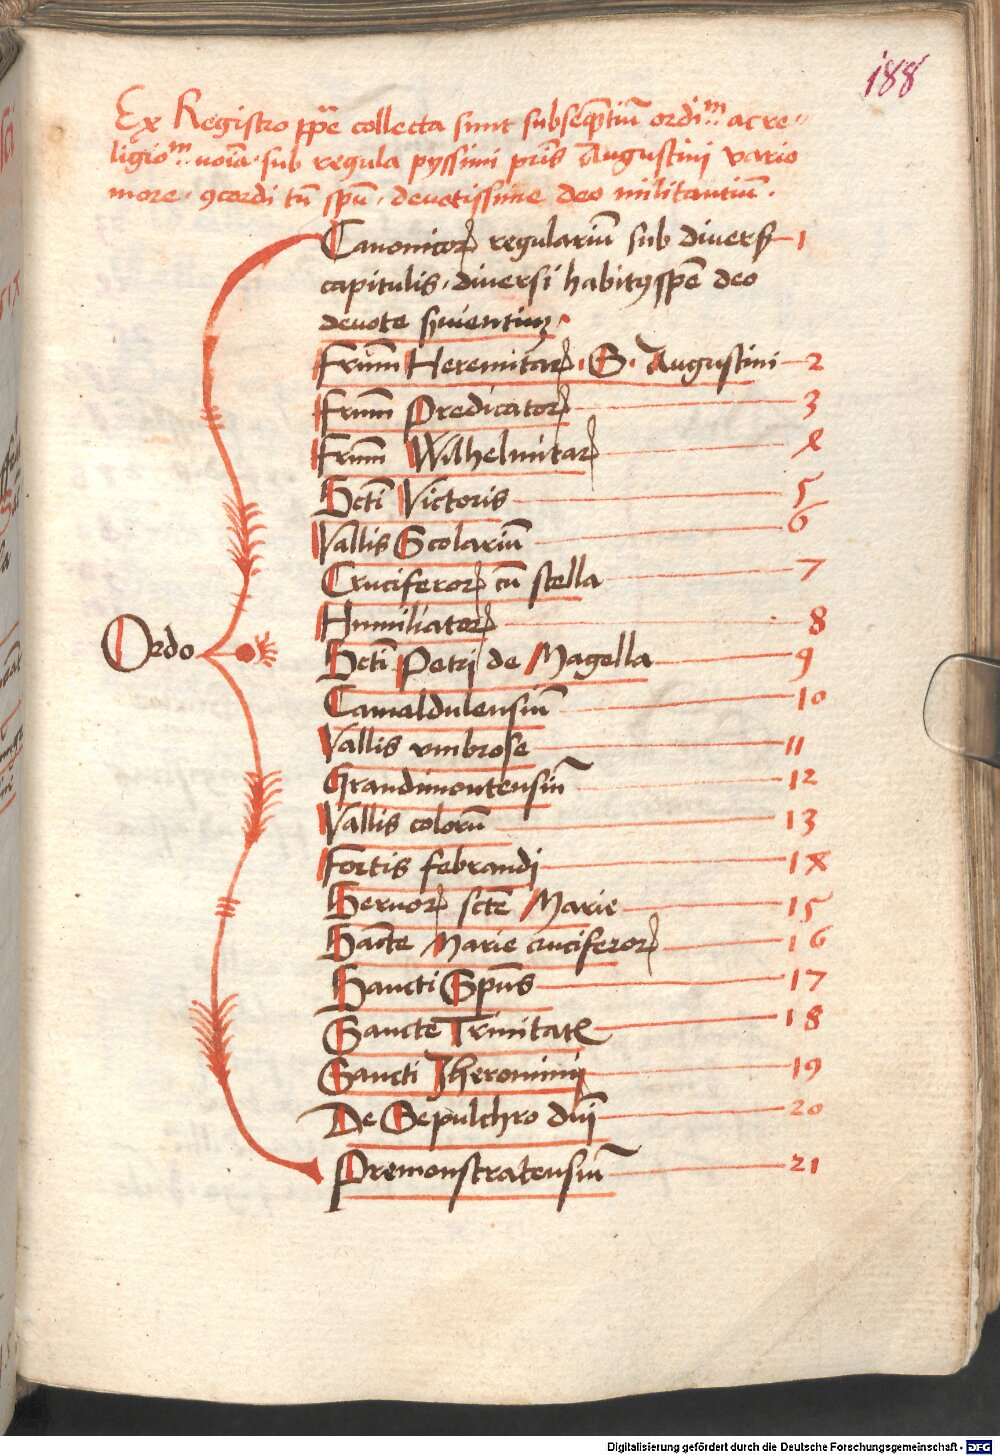 188
Ex Registro ppe collecta sunt subseqētiū ordi.m ac re-
ligio.m noīa sub regula pyssimi pris Augustini vario
more ꝯcordi tn̄ spū devotissime deo militantiū.
Canonicoꝝ regulariū sub divers 1
capitulis diversi habitꝰ spē deo
devote ẜvientiū
Frūm Heremitaꝝ S. Augustini 2
Frūm Predicatoꝝ 3
Frūm Wilhelmitaꝝ 4
Scti Victoris 5
Vallis Scolariū 6
Cruciferoꝝ cū stella 7
Humiliatoꝝ 8
Ordo
Scti Petri de Magella 9
Camaldulensiū 10
Vallis vmbrose 11
Grandimontensiū 12
Vallis colorū 13
Fortis febrandi 14
Servoꝝ scte Marie 15
Sancte Marie cruciferoꝝ 16
Sancti Spūs 17
Sancte Trinitatꝭ 18
Sancti Jheronimij 19
De Sepulchro dnī 20
Premonstratensiū 21
Digitalisierung gefördert durch die Deutsche Forschungsgemeinschaft - DFG